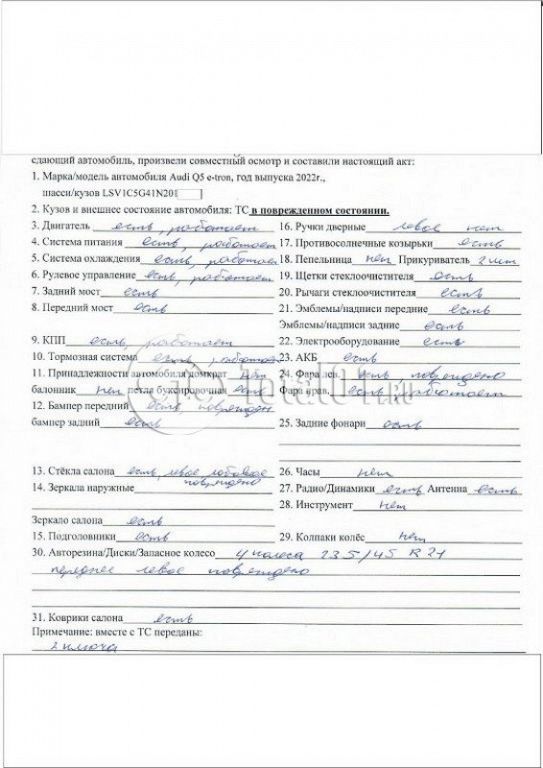 сдающий автомобиль, произвели совместный осмотр и составили настоящий акт:
1. Марка/модель автомобиля Audi Q5 e-tron, год выпуска 2022г.,
шасси/кузов LSV1C5G41N201
2. Кузов и внешнее состояние автомобиля: ТС в поврежденном состоянии.
3. Двигатель есть, работает
4. Система питания есть, работает
5. Система охлаждения есть, работает
6. Рулевое управление есть, работает
7. Задний мост есть
8. Передний мост есть
9. КПП есть, работает
10. Тормозная система есть, работает
11. Принадлежности автомобиля домкрат нет
балонник нет петля буксировочная есть
12. Бампер передний есть поврежден
бампер задний есть
13. Стёкла салона есть, левое лобовое
повреждено
14. Зеркала наружные
Зеркало салона есть
15. Подголовники есть
16. Ручки дверные левое нет
17. Противосолнечные козырьки есть
18. Пепельница нет Прикуриватель 2 шт
19. Щетки стеклоочистителя есть
20. Рычаги стеклоочистителя есть
21. Эмблемы/надписи передние есть
Эмблемы/надписи задние есть
22. Электрооборудование есть
23. АКБ есть
24. Фара лев. есть повреждено
Фара прав. есть работает
25. Задние фонари есть
26. Часы нет
27. Радио/Динамики есть Антенна есть
28. Инструмент нет
29. Колпаки колёс нет
30. Авторезина/Диски/Запасное колесо 4 колеса 235/45 R 21
переднее левое повреждено
31. Коврики салона есть
Примечание: вместе с ТС переданы:
2 ключа